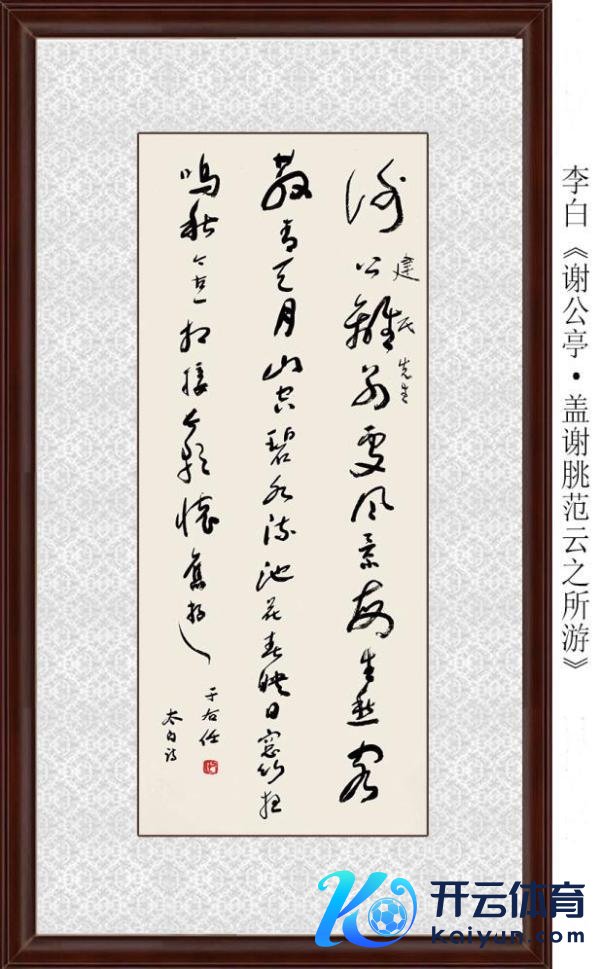 李白《谢公亭·盖谢朓范云之所游》
謝公離別處風景每生愁客
建民先生
散青天月山空碧水流池花春映日窓竹夜
鳴秋今古一相接長歌懷舊游
于右任
太白詩
开云体育
kaiyun.com